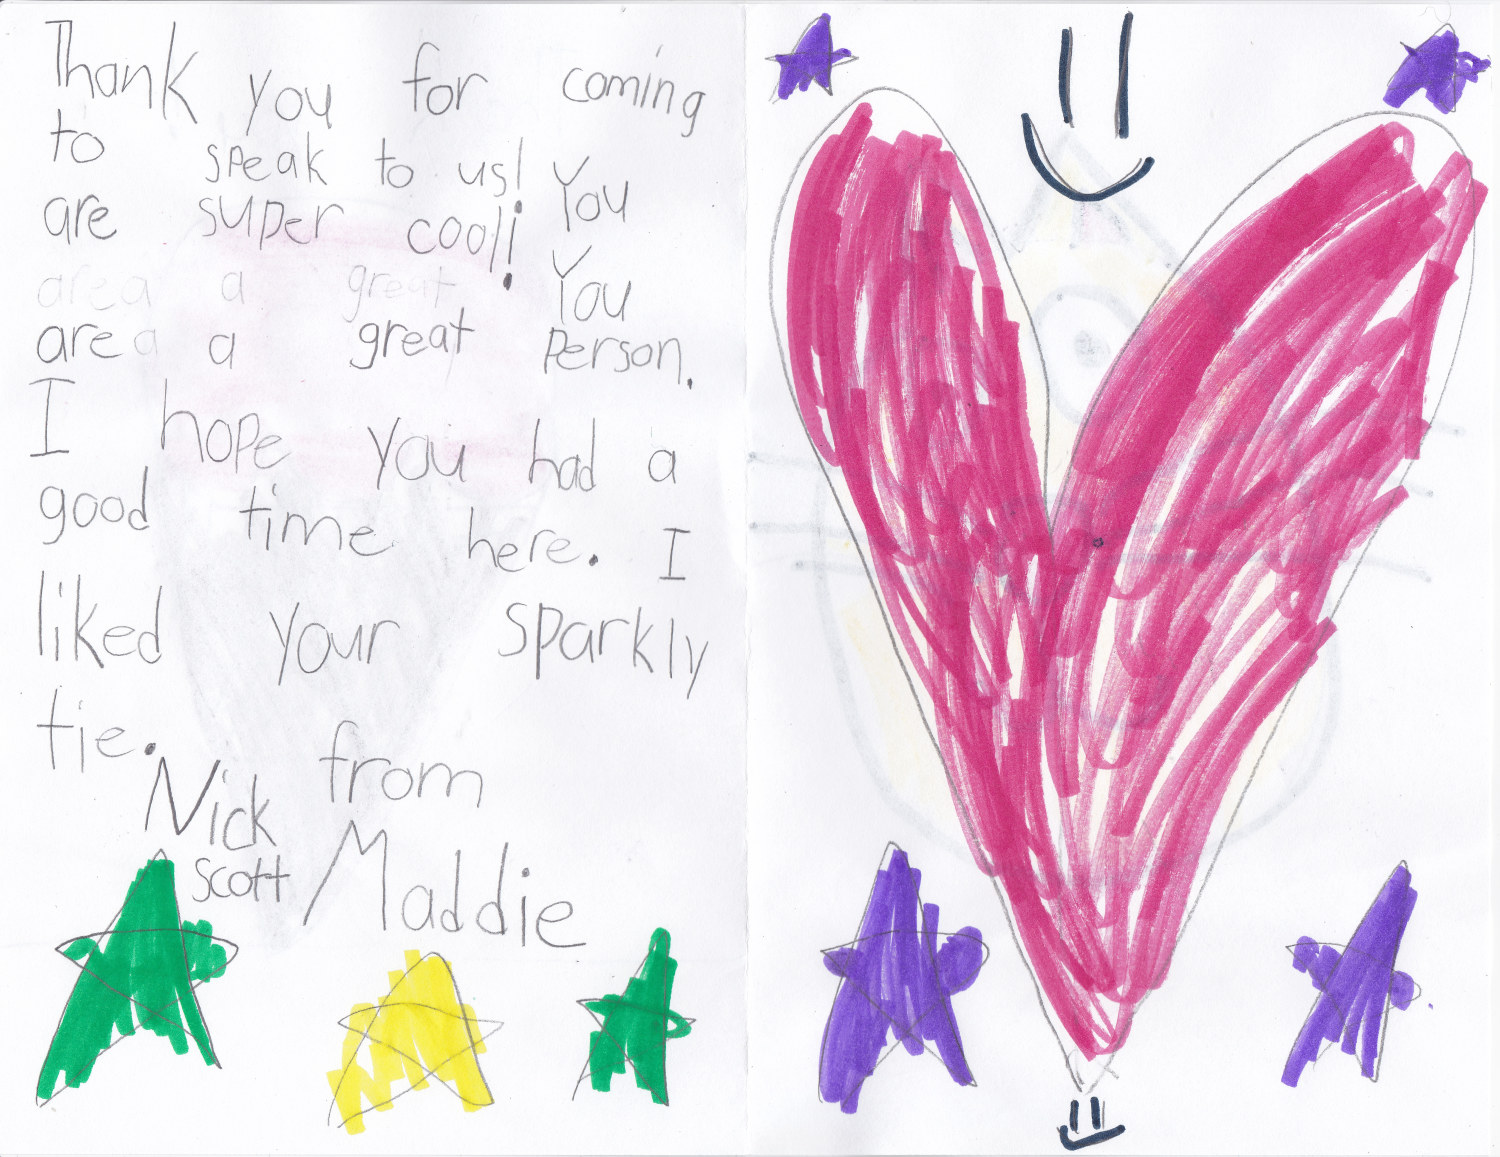 Thank you for coming
to speak to us! You
are super cool! You
area a great
area a great person.
I hope you had a
good time here. I
liked your sparkly
tie.
from
Nick
Scott Maddie